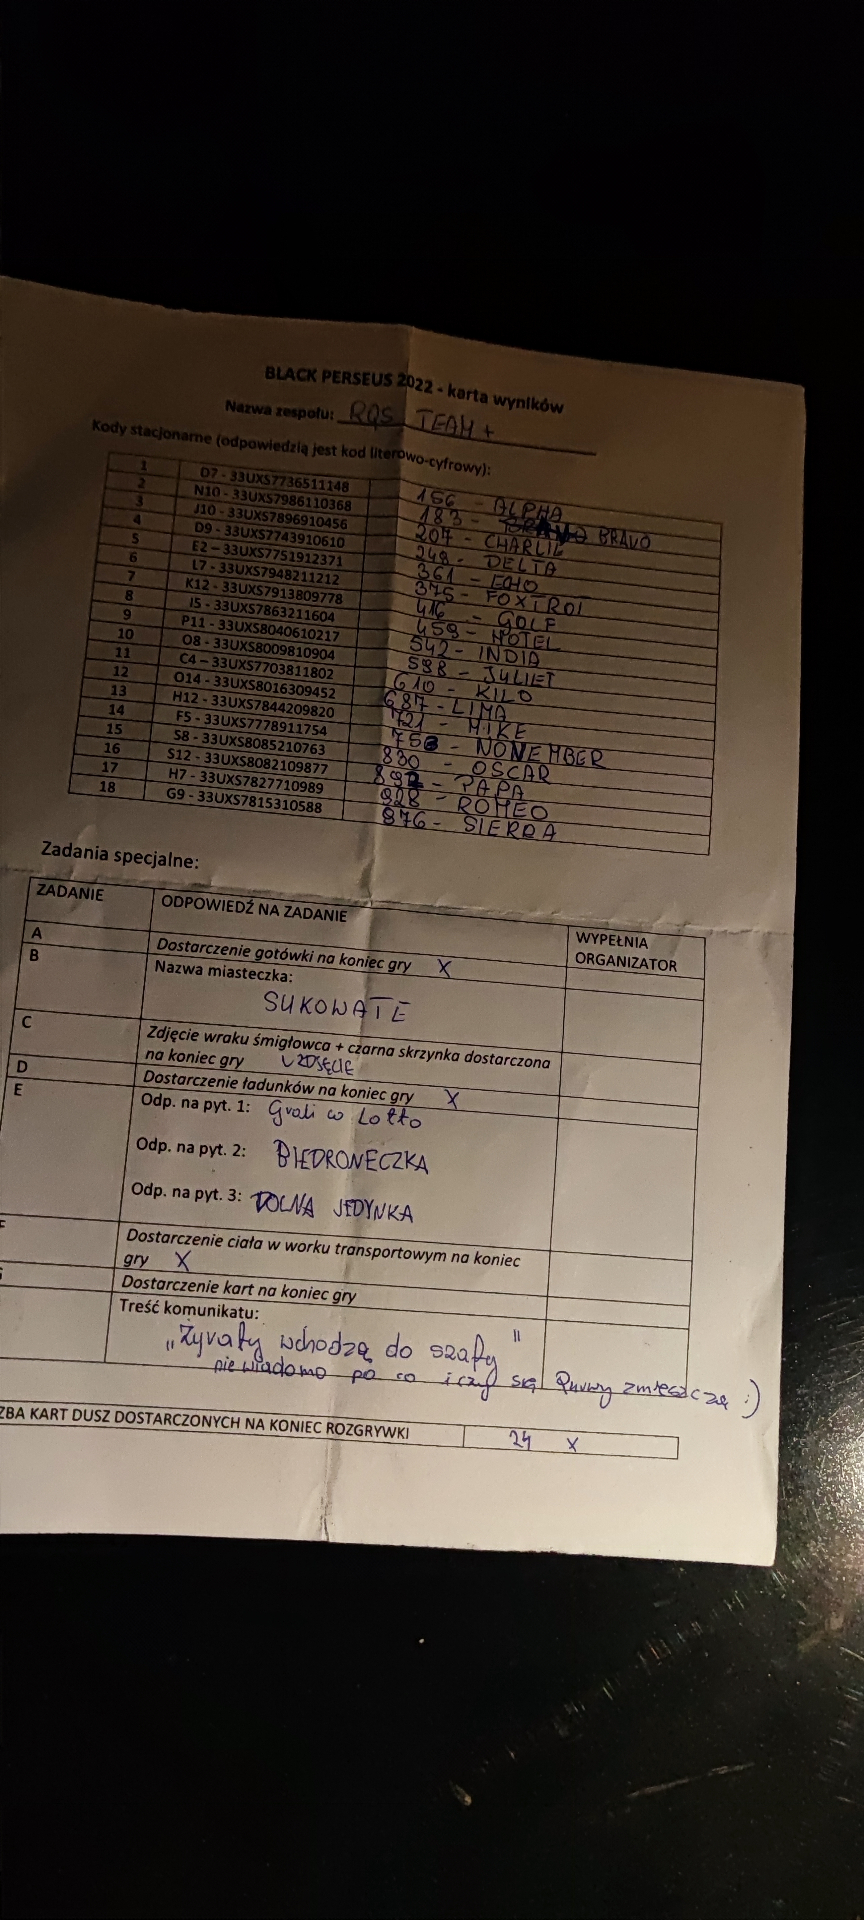 BLACK PERSEUS 2022 - karta wyników
Nazwa zespołu: RQS TEAM +
Kody stacjonarne (odpowiedzią jest kod literowo-cyfrowy):
1 D7 - 33UXS7736511148 156 - ALPHA
2 N10 - 33UXS7986110368 183 - BRAVO
3 J10 - 33UXS7896910456 207 - CHARLIE
4 D9 - 33UXS7743910610 248 - DELTA
5 E2 – 33UXS7751912371 361 - EHO
6 L7 - 33UXS7948211212 375 - FOXTROT
7 K12 - 33UXS7913809778 416 - GOLF
8 I5 - 33UXS7863211604 459 - HOTEL
9 P11 - 33UXS8040610217 542 - INDIA
10 O8 - 33UXS8009810904 598 - JULIET
11 C4 – 33UXS7703811802 610 - KILO
12 O14 - 33UXS8016309452 687 - LIMA
13 H12 - 33UXS7844209820 721 - MIKE
14 F5 - 33UXS7778911754 753 - NONEMBER
15 S8 - 33UXS8085210763 830 - OSCAR
16 S12 - 33UXS8082109877 892 - PAPA
17 H7 - 33UXS7827710989 928 - ROMEO
18 G9 - 33UXS7815310588 976 - SIERRA
Zadania specjalne:
ZADANIE ODPOWIEDŹ NA ZADANIE WYPEŁNIA
ORGANIZATOR
A Dostarczenie gotówki na koniec gry X
B Nazwa miasteczka:
SUKOWATE
C Zdjęcie wraku śmigłowca + czarna skrzynka dostarczona
na koniec gry
D Dostarczenie ładunków na koniec gry X
E Odp. na pyt. 1: Grali w Lotto
Odp. na pyt. 2: BIEDRONECZKA
Odp. na pyt. 3: DOLNA JEDYNKA
F Dostarczenie ciała w worku transportowym na koniec
gry X
Dostarczenie kart na koniec gry
Treść komunikatu:
„Żyrafy wchodzą do szafy"
nie wiadomo po co i czy się zmieszczą :)
ZBA KART DUSZ DOSTARCZONYCH NA KONIEC ROZGRYWKI 24 X